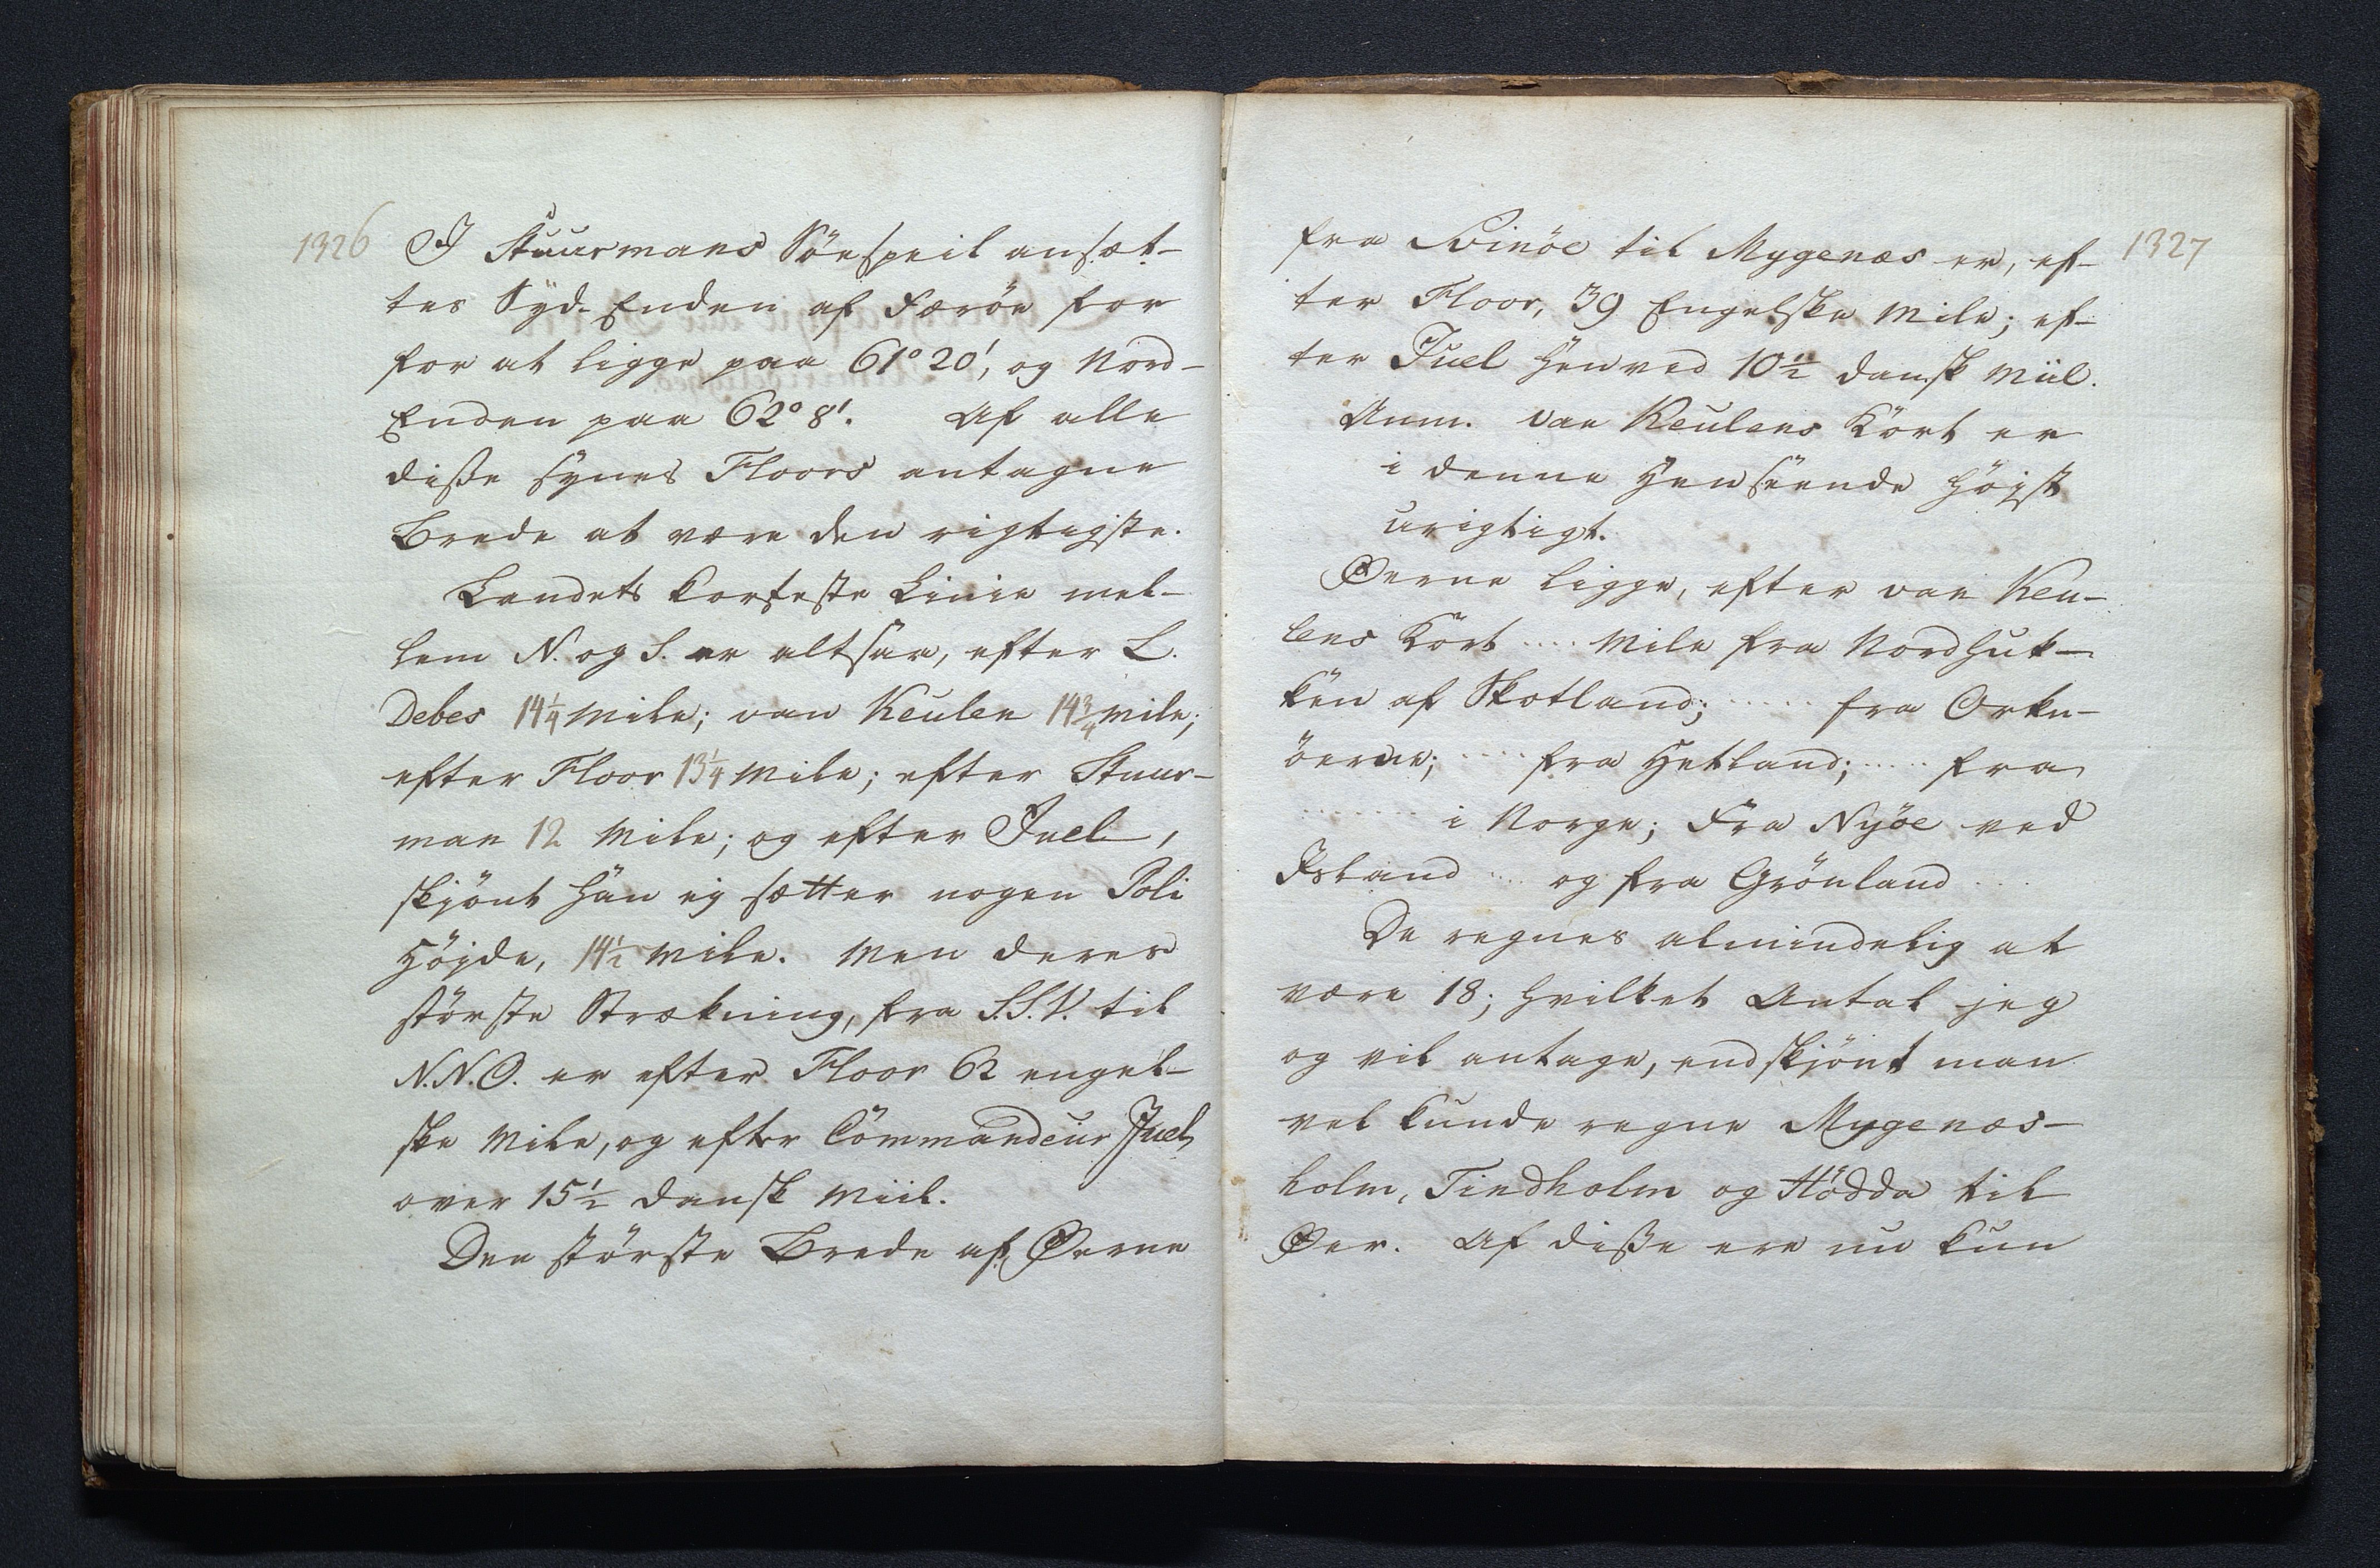 1326
I Stuurmans Söespeil ansæt-
tes Syd-Enden af Færöe for
for at ligge paa 61° 20', og Nord-
Enden paa 62° 8'. Af alle
disse synes Floors antagne
Brede at være den rigtigste.
Landets korteste Linie mel-
lem N. og S. er altsaa, efter L.
Debes 14 1/4 Mile; van Keulen 14 3/4 Mile;
efter Floor 13 1/4 Mile; efter Stuur-
man 12 Mile; og efter Juel,
skjönt han ej sætter nogen Poli
Höjde, 14 1/2 Mile. Men deres
störste Strækning, fra S.S.V. til
N.N.O. er efter Floor 62 engel-
ske Mile, og efter Commandeur Juel,
over 15 1/2 dansk Miil.
Den störste Brede af Øerne
1327
fra Svinöe til Mygenæs er, ef-
ter Floor, 39 Engelske Mile; ef-
ter Juel henved 10 1/2 dansk Miil.
Anm. van Keulens Kort er
i denne Henseende höjst
urigtigt.
Øerne ligge, efter van Keu-
lens Kort .... Mile fra Nordhuk-
ken af Skotland; ..... fra Orkn-
öerne; .... fra Hetland; ..... fra
........ i Norge; Fra Nyöe ved
Island .... og fra Grönland ...
De regnes almindelig at
være 18; hvilket Antal jeg
og vil antage, endskjönt man
vel kunde regne Mygenæs-
holm, Tindholm og Hödda til
Øer. Af disse ere nu kun